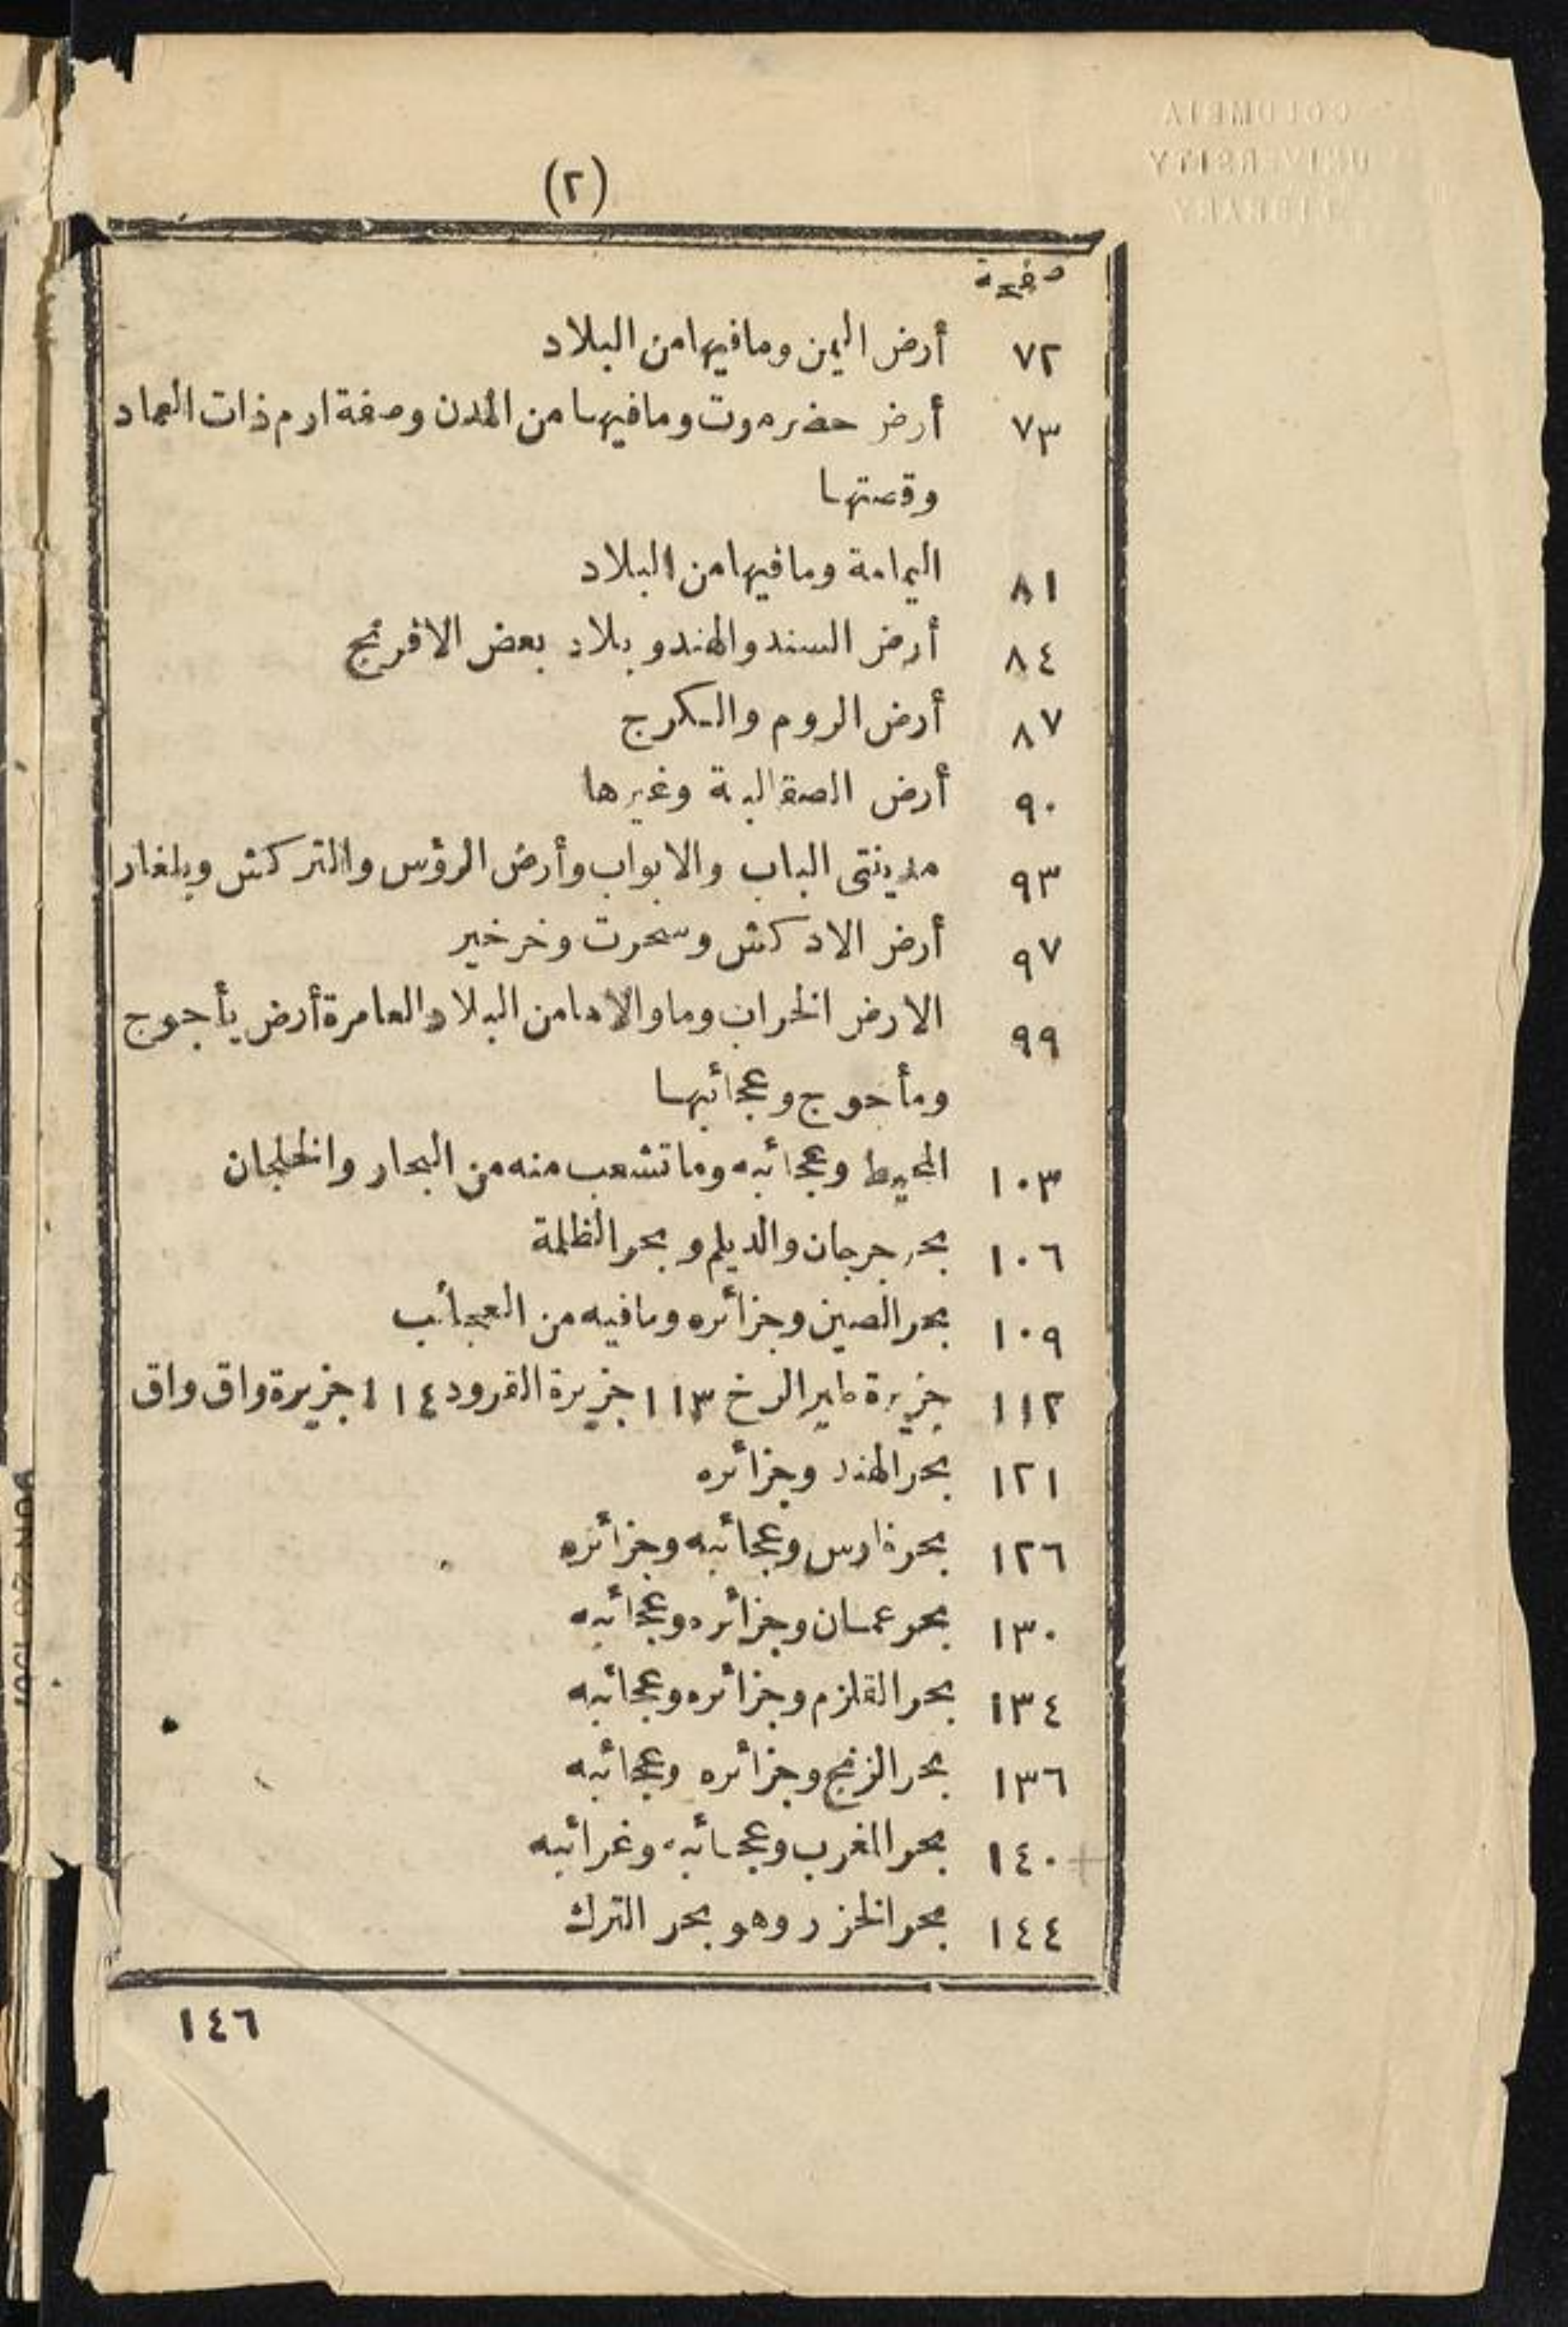 (٢)
صفحة
٧٢ أرض اليمن ومافيها من البلاد
٧٣ أرض حضرموت ومافيها من المدن وصفة ارم ذات العماد
وقصتها
٨١ اليمامة ومافيها من البلاد
٨٤ أرض السند والهند وبلاد بعض الافرنج
٨٧ أرض الروم والكرج
٩٠ أرض الصقالبة وغيرها
٩٣ مدينتى الباب والابواب وأرض الرؤس والتركش وبلغار
٩٧ أرض الادكش وسحرت وخرخير
٩٩ الارض الخراب وما والاها من البلاد العامرة أرض يأجوج
ومأجوج وعجائبها
١٠٣ المحيط وعجائبه وما تشعب منه من البحار والخلجان
١٠٦ بحر جرجان والديلم وبحر الظلمة
١٠٩ بحر الصين وجزائره ومافيه من العجائب
١١٢ جزيرة طير الرخ ١١٣ جزيرة القرود ١١٤ جزيرة واق واق
١٢١ بحر الهند وجزائره
١٢٦ بحر فارس وعجائبه وجزائره
١٣٠ بحر عمان وجزائره وعجائبه
١٣٤ بحر القلزم وجزائره وعجائبه
١٣٦ بحر الزنج وجزائره وعجائبه
١٤٠ بحر المغرب وعجائبه وغرائبه
١٤٤ بحر الخزر وهو بحر الترك
١٤٦
COLUMBIA
UNIVERSITY
LIBRARY